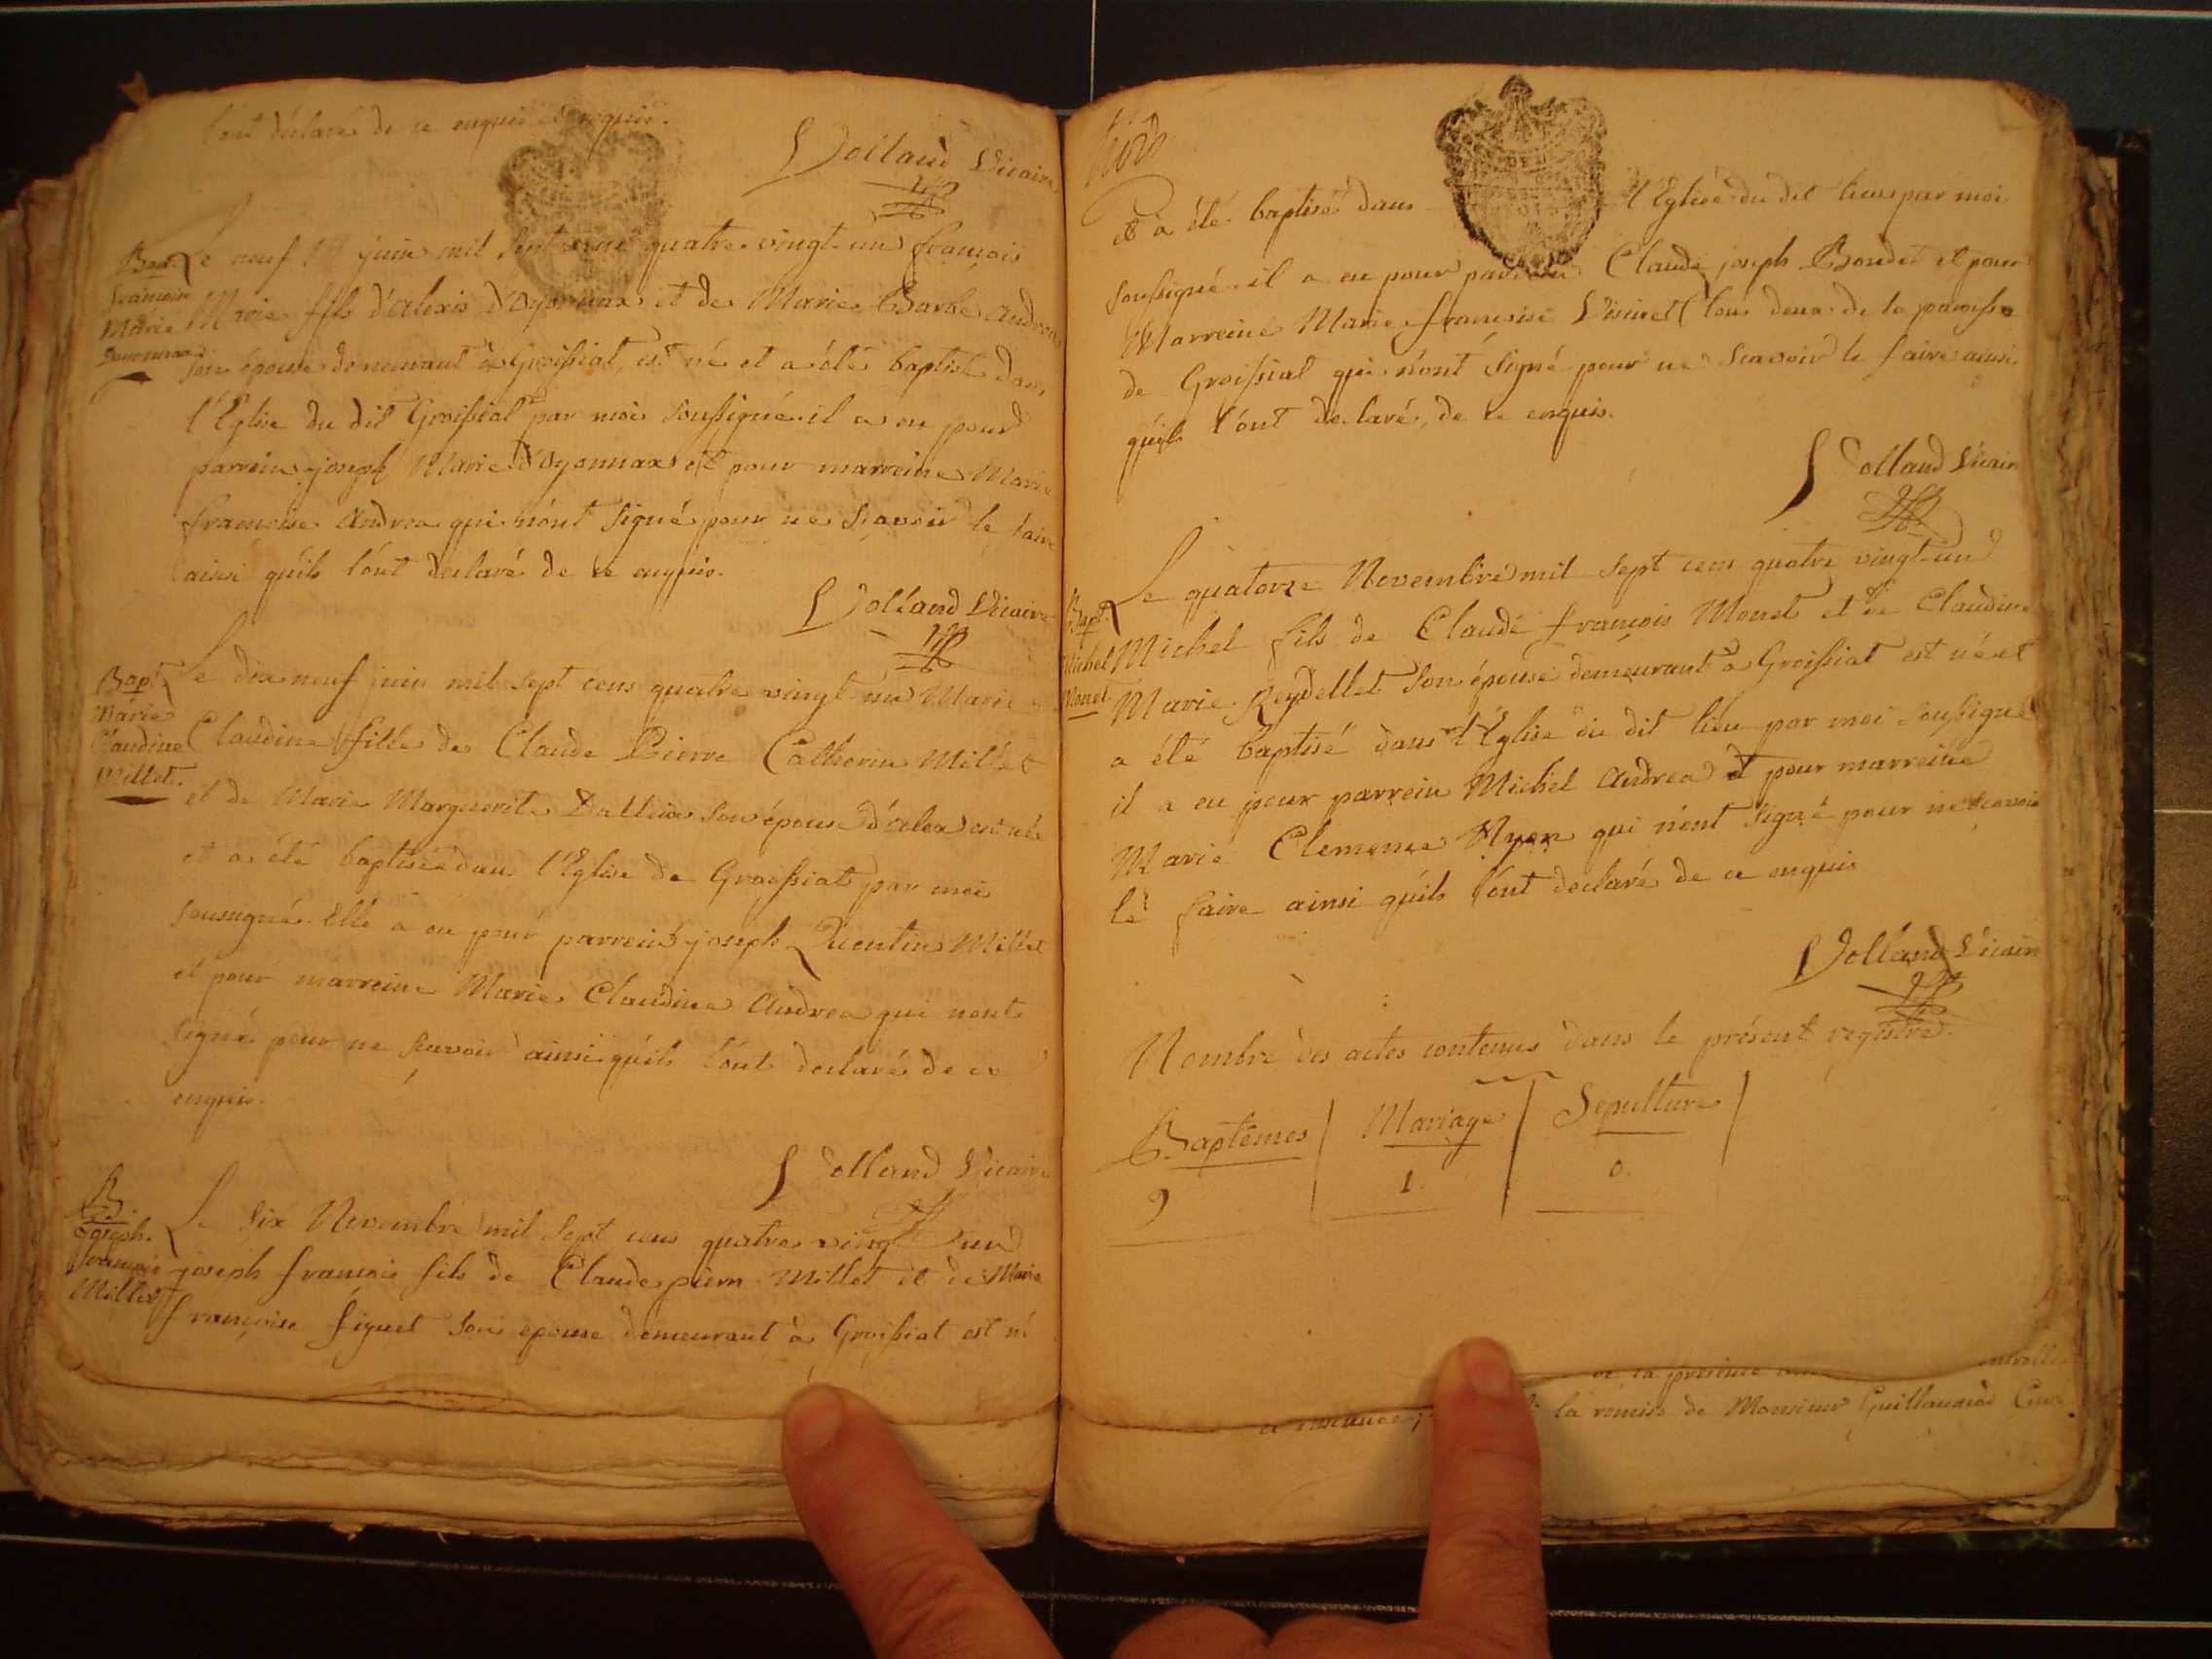 l'ont déclaré de ce enquis et requis.
Dolland Vicaire
Bap.
françois
Marie
Doyonnax
Le neuf juin mil sept cens quatre-vingt-un françois
Marie fils d'alexis d'Oyonnax et de Marie Barbe Andrea
son épouse demeurant à Groissiat, est né et a été baptisé dans
l'Eglise du dit Groissiat par moi soussigné il a eu pour
parrein joseph Marie d'Oyonnax et pour marreine Marie
françoise Andrea qui n'ont signé pour ne sçavoir le faire
ainsi qu'ils l'ont declaré de ce enquis.
Dolland Vicaire
Bapt.
Marie
Claudine
Millet.
Le dix neuf juin mil sept cens quatre vingt un Marie
Claudine fille de Claude Pierre Catherin Millet
et de Marie Marguerite son épouse d'alex est née
et a été baptisée dans l'Eglise de Groissiat par moi
soussigné. Elle a eu pour parrein joseph Quentin Millet
et pour marreine Marie Claudine Andrea qui nont
signé pour ne scavoir ainsi qu'ils l'ont declaré de ce
enquis.
Dolland Vicaire
B.
Joseph.
françois
Millet
Le six Novembre mil sept cens quatre vingt un
joseph francois fils de Claude pierre Millet et de Marie
françoise figuet son epouse demeurant à Groissiat est né
et a été baptisé dans l'Eglise du dit lieu par moi
soussigné il a eu pour parrein Claude joseph Boudet et pour
Marreine Marie françoise tous deux de la paroisse
de Groissiat qui n'ont signé pour ne scavoir le faire ainsi
qu'ils l'ont declaré, de ce enquis.
Dolland Vicaire
Bapt.
Michel
Monet
Le quatorze Novembre mil sept cens quatre vingt-un
Michel fils de Claude françois Monet et de Claudine
Marie Reydellet son épouse demeurant à Groissiat est né et
a été baptisé dans l'Eglise du dit lieu par moi soussigné
il a eu pour parrein Michel Andrea et pour marreine
Marie Clemence qui n'ont signé pour ne scavoir
le faire ainsi qu'ils l'ont declaré de ce enquis
Dolland Vicaire
Nombre des actes contenus dans le présent registre.
Baptêmes Mariage Sepulture
9 1. 0.
la remise de Monsieur Guillaumod Curé